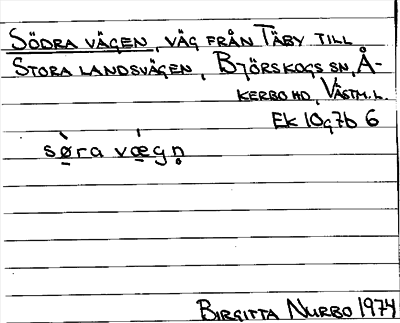 SÖDRA VÄGEN, VÄG FRÅN TÄBY TILL
STORA LANDSVÄGEN, BJÖRSKOGS SN, Å-
KERBO HD, VÄSTM.L.
EK 10g7b 6
sø̀ra vǽgn̥
BIRGITTA NURBO 1974